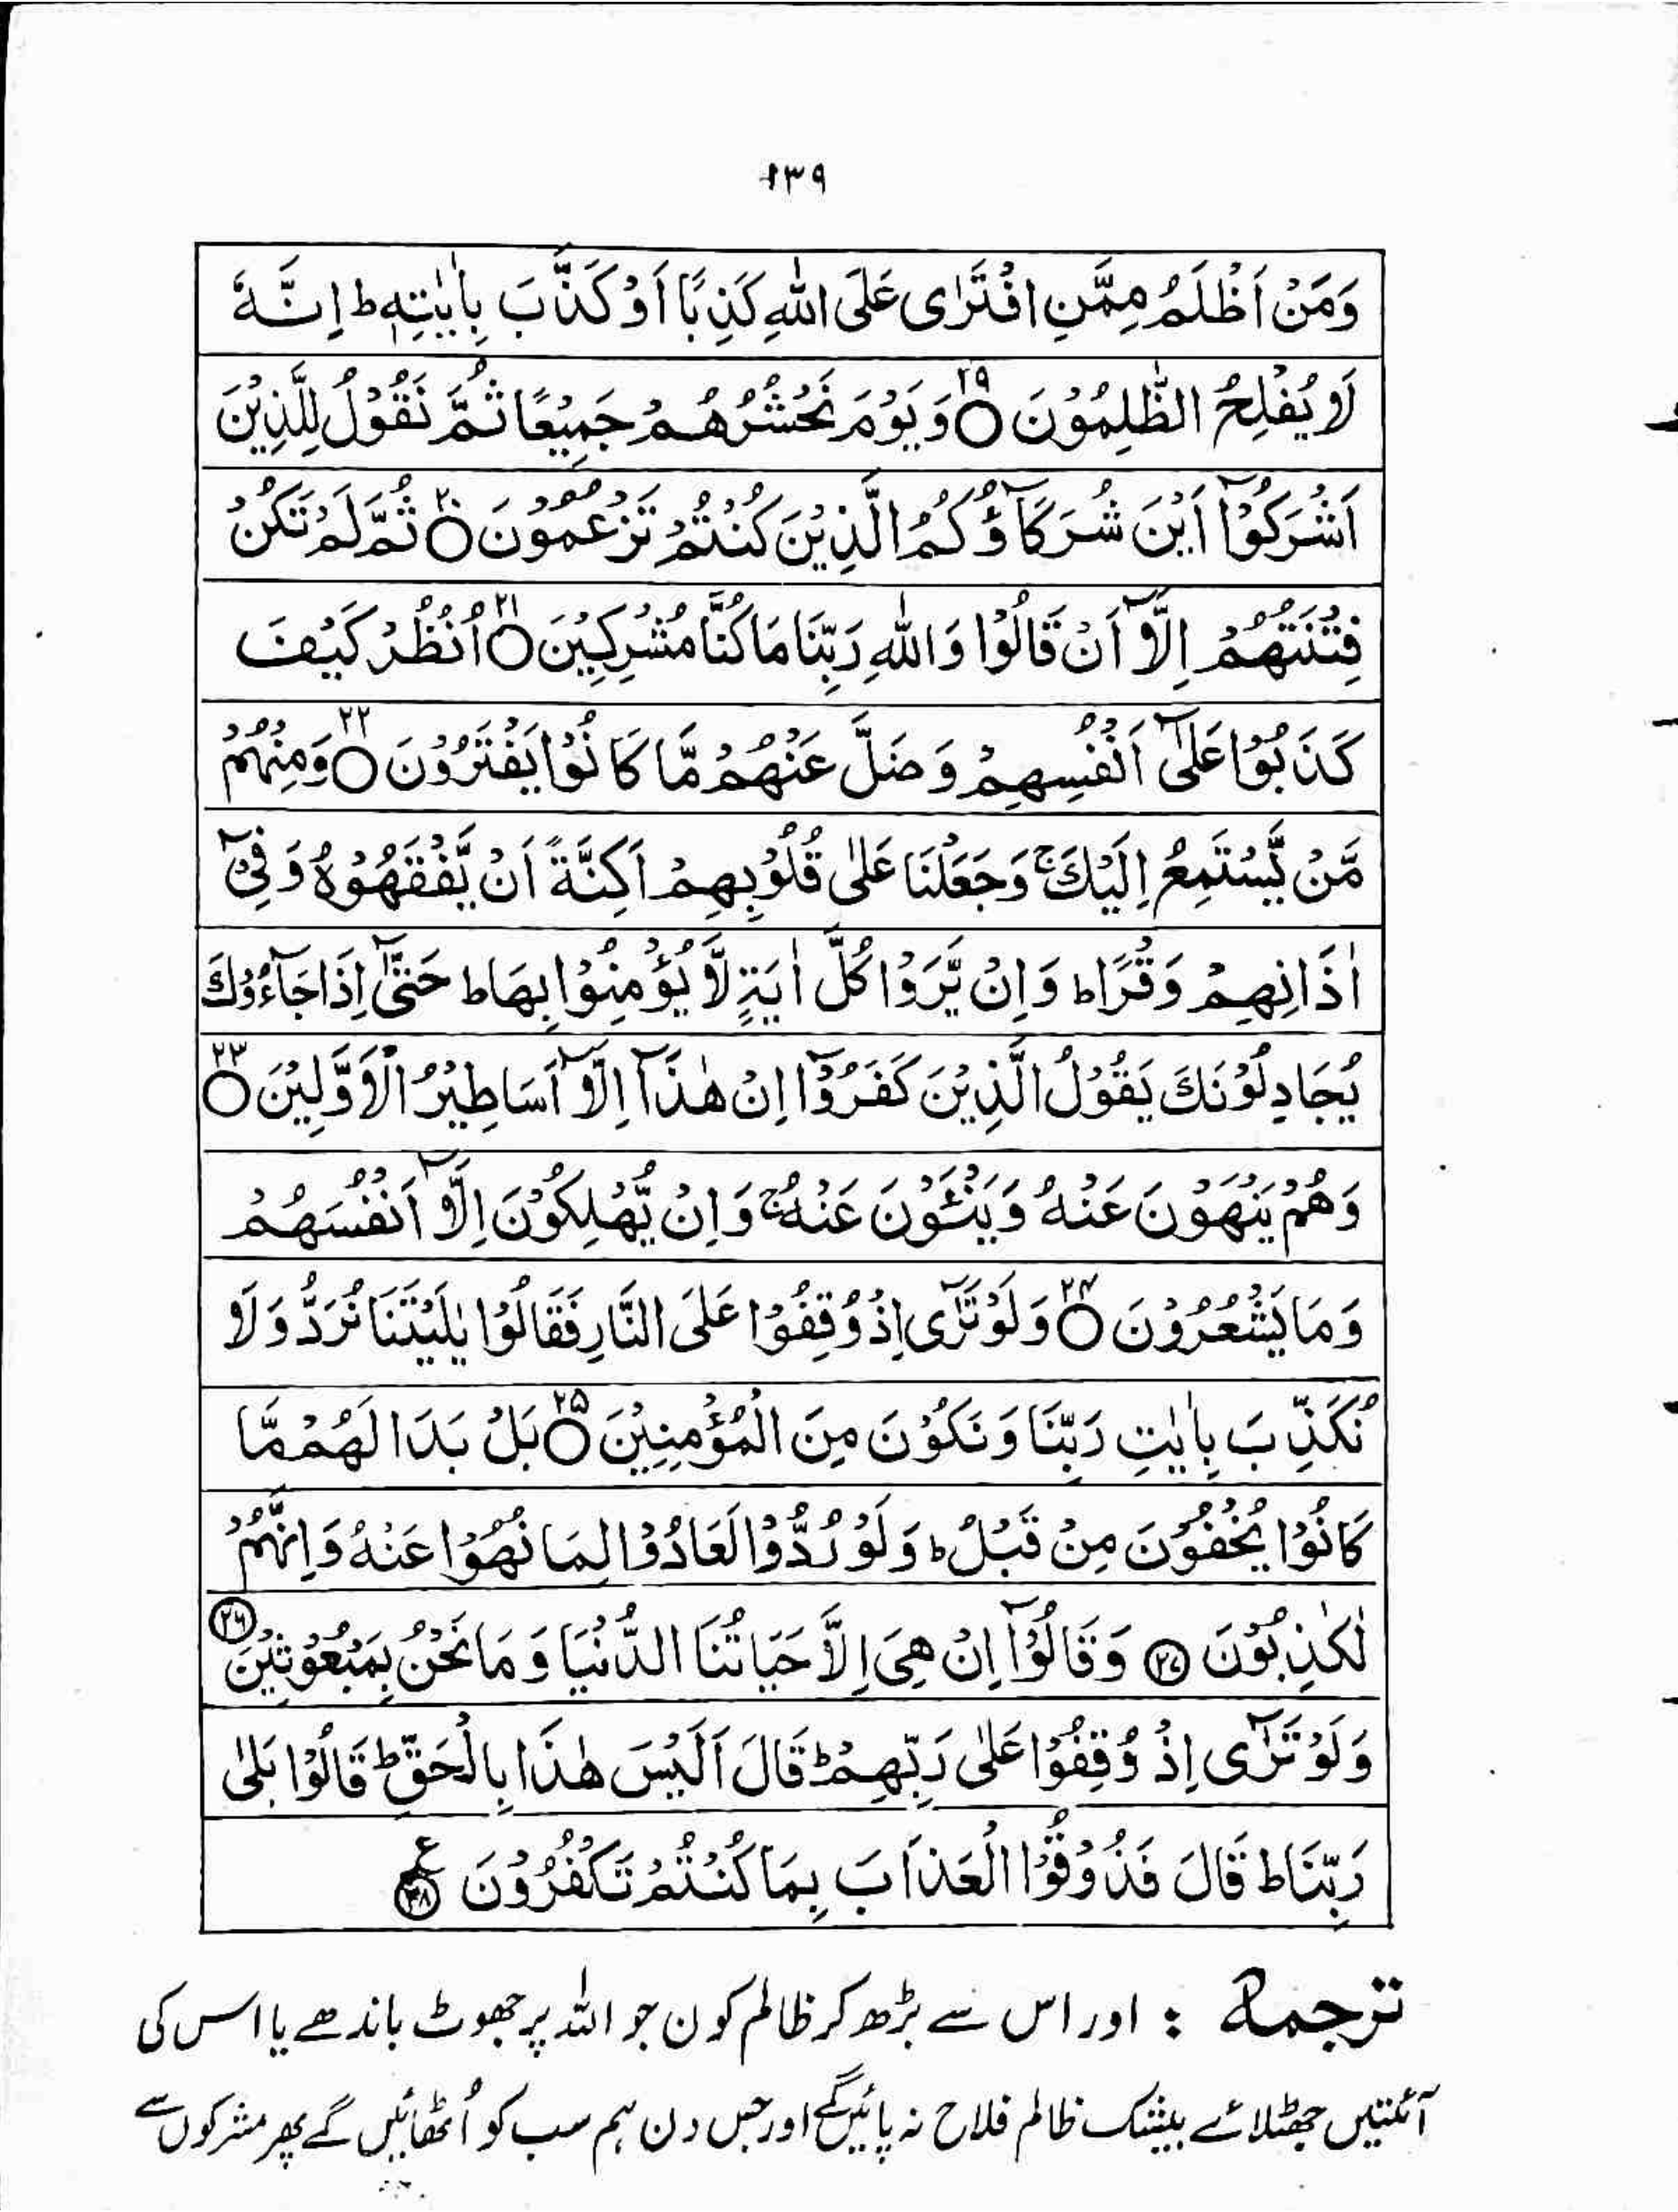 ۱۳۹
وَمَنْ اَظْلَمُ مِمَّنِ افْتَرٰى عَلَى اللّٰهِ كَذِبًا اَوْ كَذَّبَ بِاٰيٰتِهٖ ط اِنَّهٗ
لَا يُفْلِحُ الظّٰلِمُوْنَ ○۱۹ وَيَوْمَ نَحْشُرُهُمْ جَمِيْعًا ثُمَّ نَقُوْلُ لِلَّذِيْنَ
اَشْرَكُوْٓا اَيْنَ شُرَكَآؤُكُمُ الَّذِيْنَ كُنْتُمْ تَزْعُمُوْنَ ○۲۰ ثُمَّ لَمْ تَكُنْ
فِتْنَتُهُمْ اِلَّآ اَنْ قَالُوْا وَاللّٰهِ رَبِّنَا مَا كُنَّا مُشْرِكِيْنَ ○۲۱ اُنْظُرْ كَيْفَ
كَذَبُوْا عَلٰٓى اَنْفُسِهِمْ وَضَلَّ عَنْهُمْ مَّا كَانُوْا يَفْتَرُوْنَ ○۲۲ وَمِنْهُمْ
مَّنْ يَّسْتَمِعُ اِلَيْكَ ج وَجَعَلْنَا عَلٰى قُلُوْبِهِمْ اَكِنَّةً اَنْ يَّفْقَهُوْهُ وَفِيْٓ
اٰذَانِهِمْ وَقْرًا ط وَاِنْ يَّرَوْا كُلَّ اٰيَةٍ لَّا يُؤْمِنُوْا بِهَا ط حَتّٰٓى اِذَا جَآءُوْكَ
يُجَادِلُوْنَكَ يَقُوْلُ الَّذِيْنَ كَفَرُوْٓا اِنْ هٰذَآ اِلَّآ اَسَاطِيْرُ الْاَوَّلِيْنَ ○۲۳
وَهُمْ يَنْهَوْنَ عَنْهُ وَيَنْـَٔوْنَ عَنْهُ ج وَاِنْ يُّهْلِكُوْنَ اِلَّآ اَنْفُسَهُمْ
وَمَا يَشْعُرُوْنَ ○۲۴ وَلَوْ تَرٰٓى اِذْ وُقِفُوْا عَلَى النَّارِ فَقَالُوْا يٰلَيْتَنَا نُرَدُّ وَلَا
نُكَذِّبَ بِاٰيٰتِ رَبِّنَا وَنَكُوْنَ مِنَ الْمُؤْمِنِيْنَ ○۲۵ بَلْ بَدَا لَهُمْ مَّا
كَانُوْا يُخْفُوْنَ مِنْ قَبْلُ ط وَلَوْ رُدُّوْا لَعَادُوْا لِمَا نُهُوْا عَنْهُ وَاِنَّهُمْ
لَكٰذِبُوْنَ وَقَالُوْٓا اِنْ هِيَ اِلَّا حَيَاتُنَا الدُّنْيَا وَمَا نَحْنُ بِمَبْعُوْثِيْنَ
وَلَوْ تَرٰٓى اِذْ وُقِفُوْا عَلٰى رَبِّهِمْ ط قَالَ اَلَيْسَ هٰذَا بِالْحَقِّ ط قَالُوْا بَلٰى
رَبِّنَا ط قَالَ فَذُوْقُوْا الْعَذَابَ بِمَا كُنْتُمْ تَكْفُرُوْنَ ع
ترجمہ : اور اس سے بڑھ کر ظالم کون جو اللہ پر جھوٹ باندھے یا اس کی
آئتیں جھٹلائے بیشک ظالم فلاح نہ پائیں گے اور جس دن ہم سب کو اُٹھائیں گے پھر مشرکوں سے